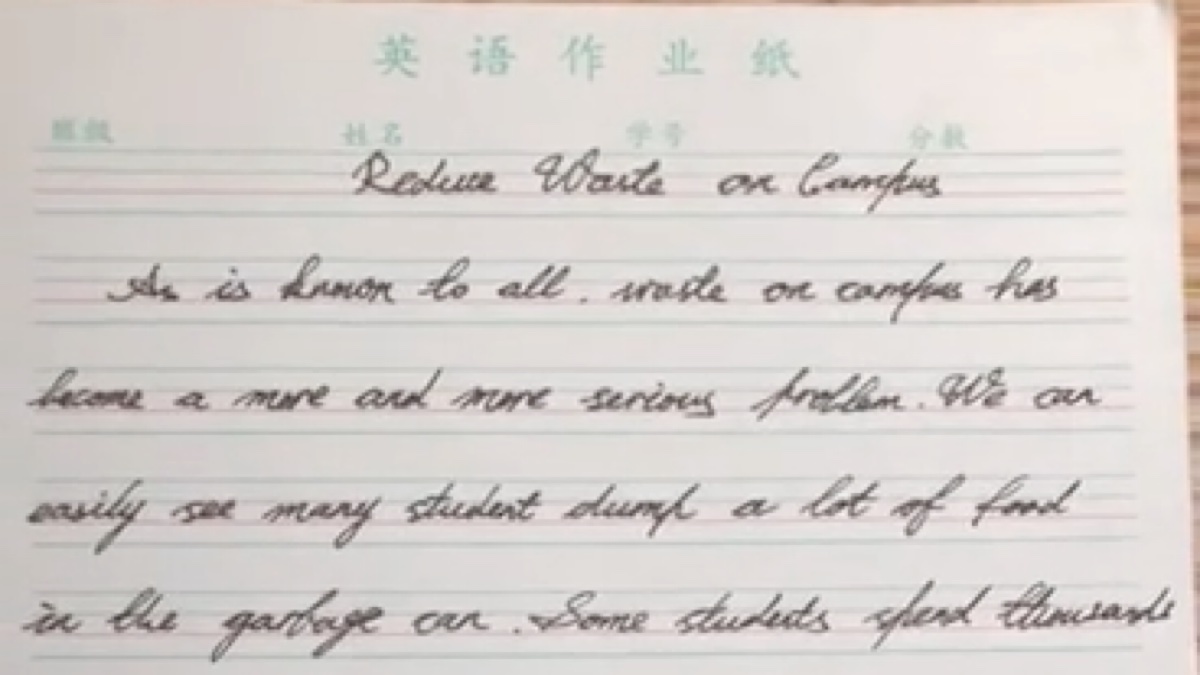 英语作业纸
班级 姓名 学号 分数
Reduce Waste on Campus
As is known to all, waste on campus has
become a more and more serious problem. We can
easily see many student dump a lot of food
in the garbage can. Some students spend thousands